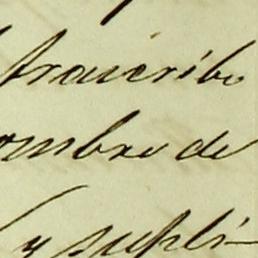 trascribo
ombre de
y supli-